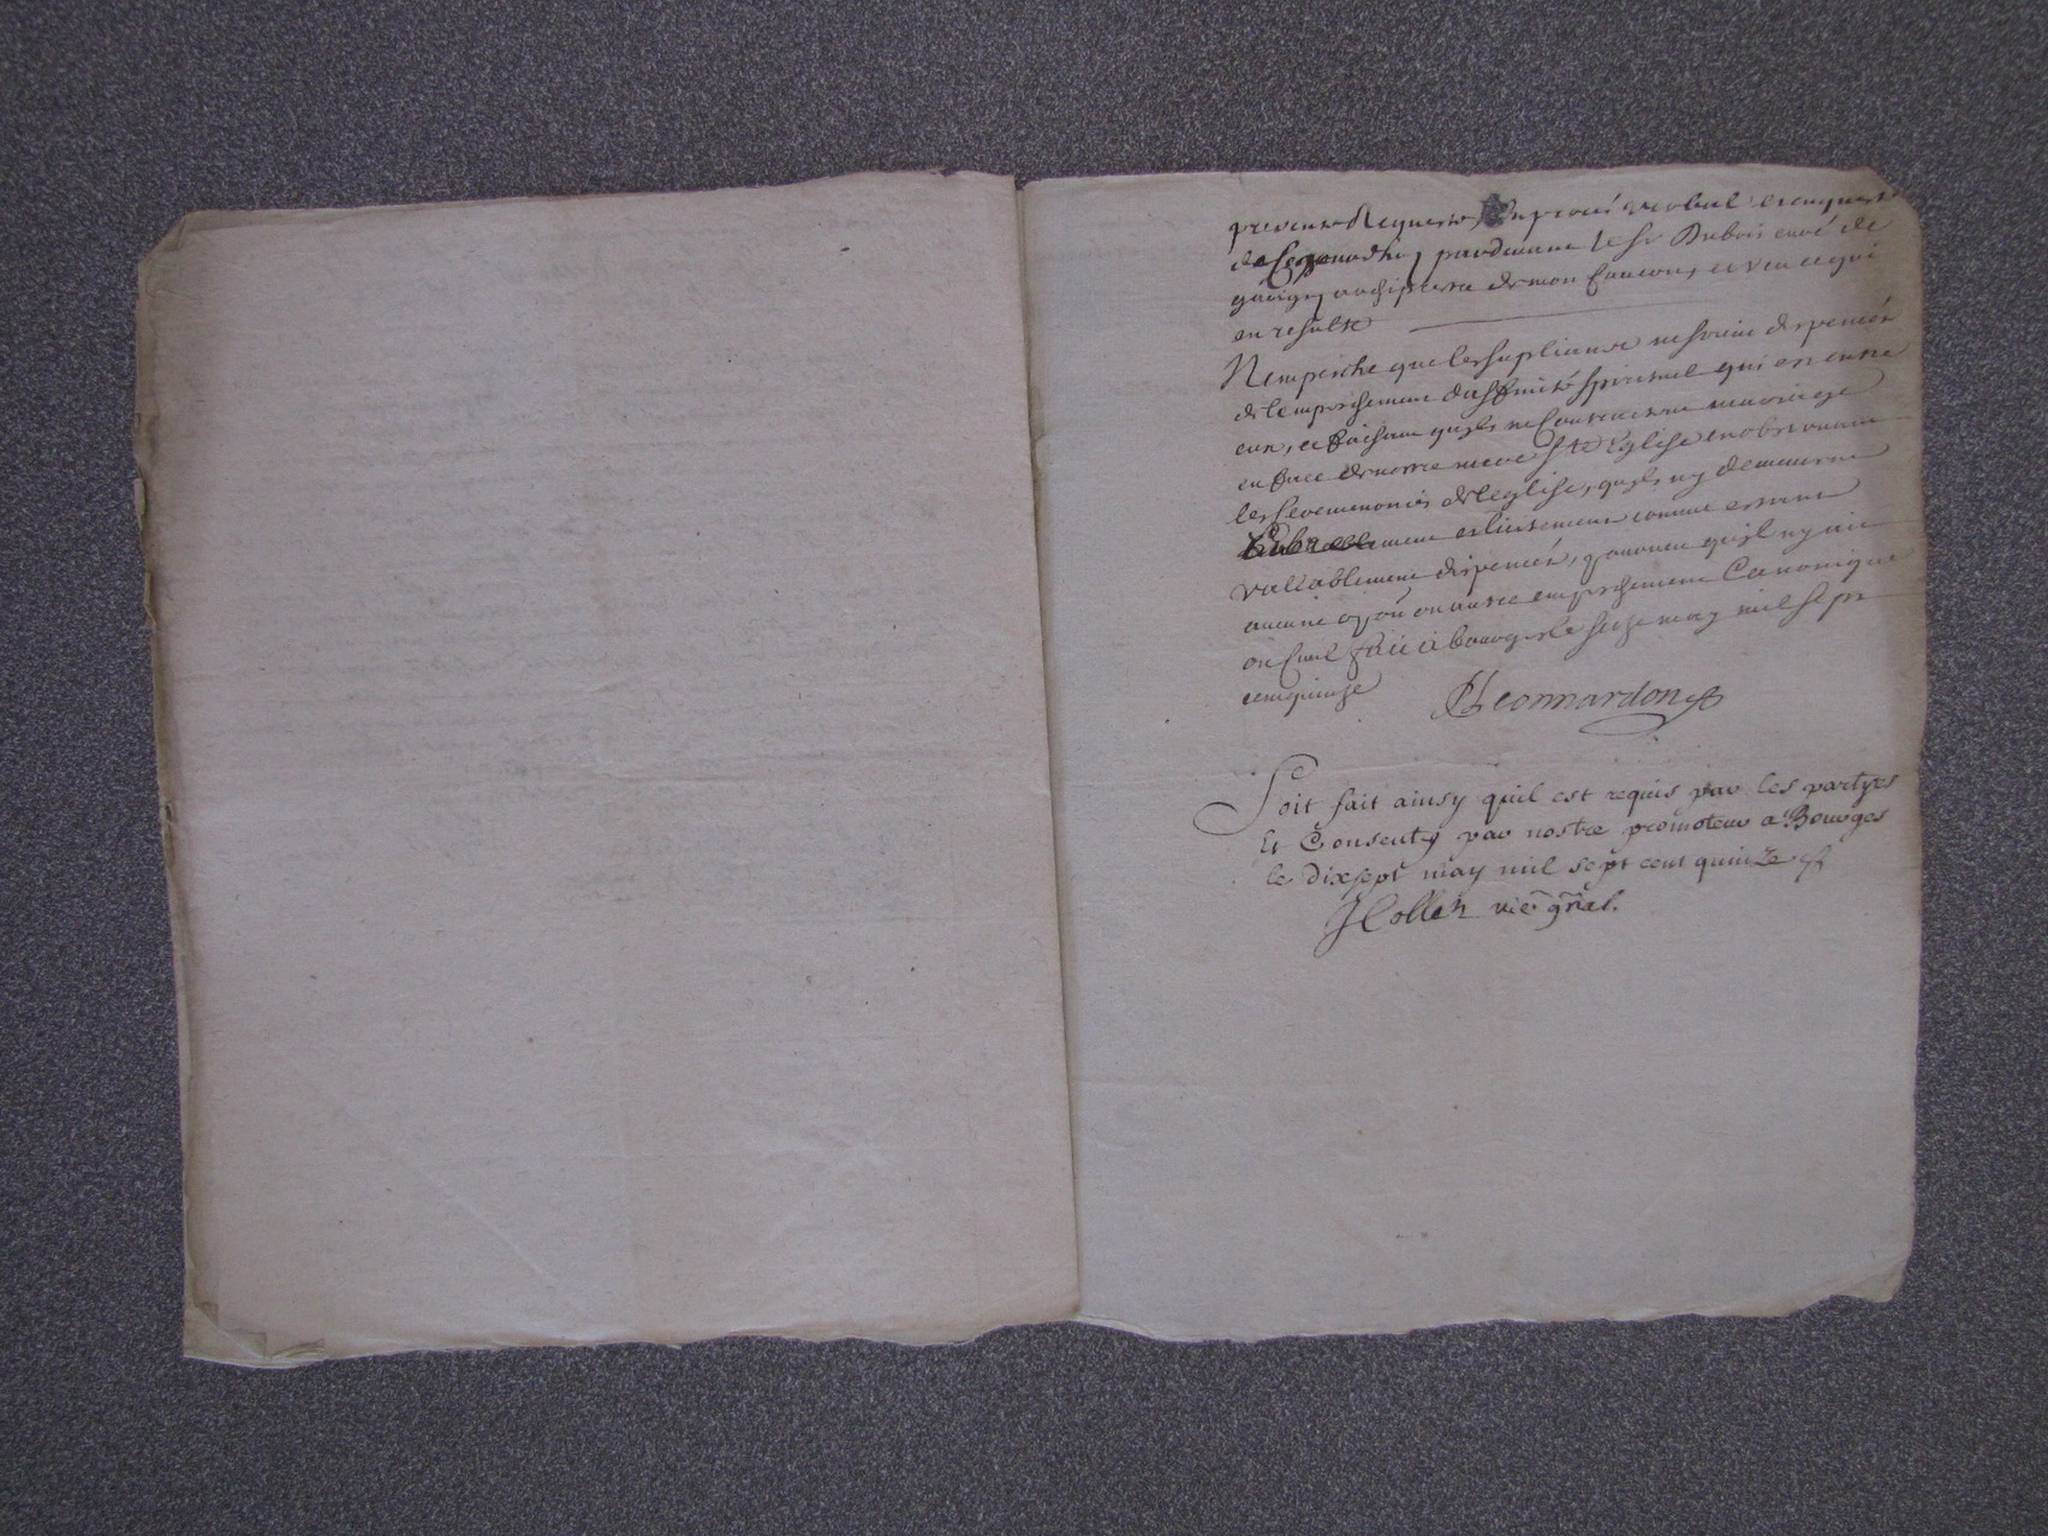 presente Requeste, un procés verbal et enqueste
de par devant le Sr Dubois curé de
archiprestre de mon et veu ce qui
en resulte
N'empesche que les supliants ne soient dispencés
de l'empeschement d'affinité spirituel qui est entre
eux, ce faisant qu'ils ne contractent mariage
en face de nostre mere Ste Eglise en observant
les seremonies de l'eglise, qu'ils n'y demeurent
librement et licitement comme estant
vallablement dispencés, pourveu qu'il n'y ait
aucune opon ou autre empeschement Canonique
ou Civil fait a bourges le seize may mil sept
cent quinze Leonnardon
Soit fait ainsy quil est requis par les partyes
Et Consenty par nostre promoteur a Bourges
le dix sept may mil sept cent quinze
JCollet vic. gñal.